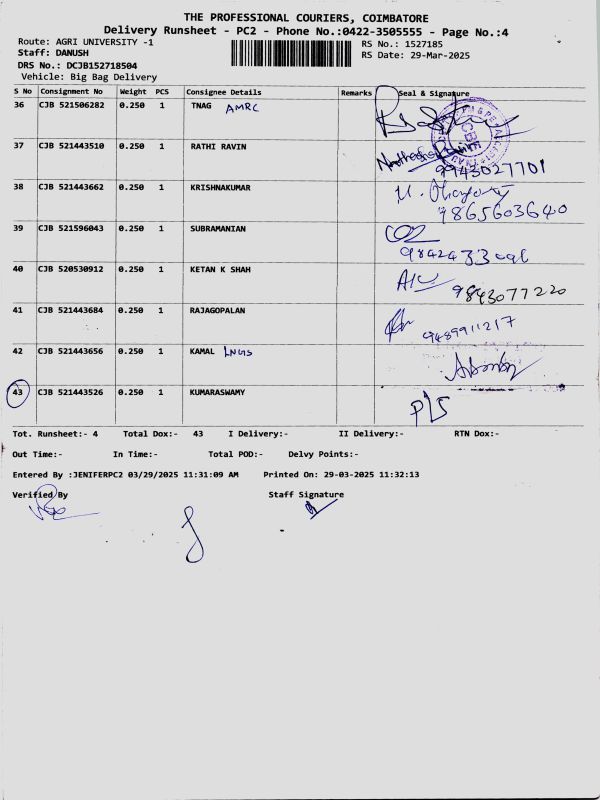 THE PROFESSIONAL COURIERS, COIMBATORE
Delivery Runsheet - PC2 - Phone No.:0422-3505555 - Page No.:4
Route: AGRI UNIVERSITY -1 RS No.: 1527185
Staff: DANUSH RS Date: 29-Mar-2025
DRS No.: DCJB152718504
Vehicle: Big Bag Delivery
S No Consignment No Weight PCS Consignee Details Remarks Seal & Signature
36 CJB 521506282 0.250 1 TNAG AMRC
CBE
37 CJB 521443510 0.250 1 RATHI RAVIN
9943027701
38 CJB 521443662 0.250 1 KRISHNAKUMAR
9865603640
39 CJB 521596043 0.250 1 SUBRAMANIAN
40 CJB 520530912 0.250 1 KETAN K SHAH
9843077220
41 CJB 521443684 0.250 1 RAJAGOPALAN
9489911217
42 CJB 521443656 0.250 1 KAMAL
43 CJB 521443526 0.250 1 KUMARASWAMY
P/S
Tot. Runsheet:- 4 Total Dox:- 43 I Delivery:- II Delivery:- RTN Dox:-
Out Time:- In Time:- Total POD:- Delvy Points:-
Entered By :JENIFERPC2 03/29/2025 11:31:09 AM Printed On: 29-03-2025 11:32:13
Verified By Staff Signature